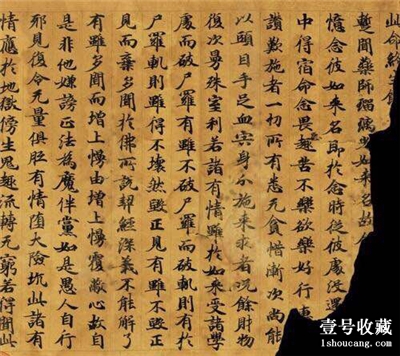 此命終
暫聞藥師瑠璃光如來名故
憶念彼如來名即於念時從彼處沒還
中得宿命念畏趣苦不樂欲樂好行
讚歎施者一切所有悉无貪惜漸次尚能
以頭目手足血宍身分施來求者況餘財物
復次曼殊室利若諸有情雖於如來受諸學
處而破尸羅有雖不破尸羅而破軌則有於
尸羅軌則雖得不壞然毀正見有雖不毀正
見而棄多聞於佛所說契經深義不能解了
有雖多聞而增上慢由增上慢覆蔽心故自
是非他嫌謗正法為魔伴黨如是愚人自行
邪見復令无量俱胝有情墮大險坑此諸有
情應於地獄傍生鬼趣流轉无窮若得聞此
壹号收藏
1shoucang.com